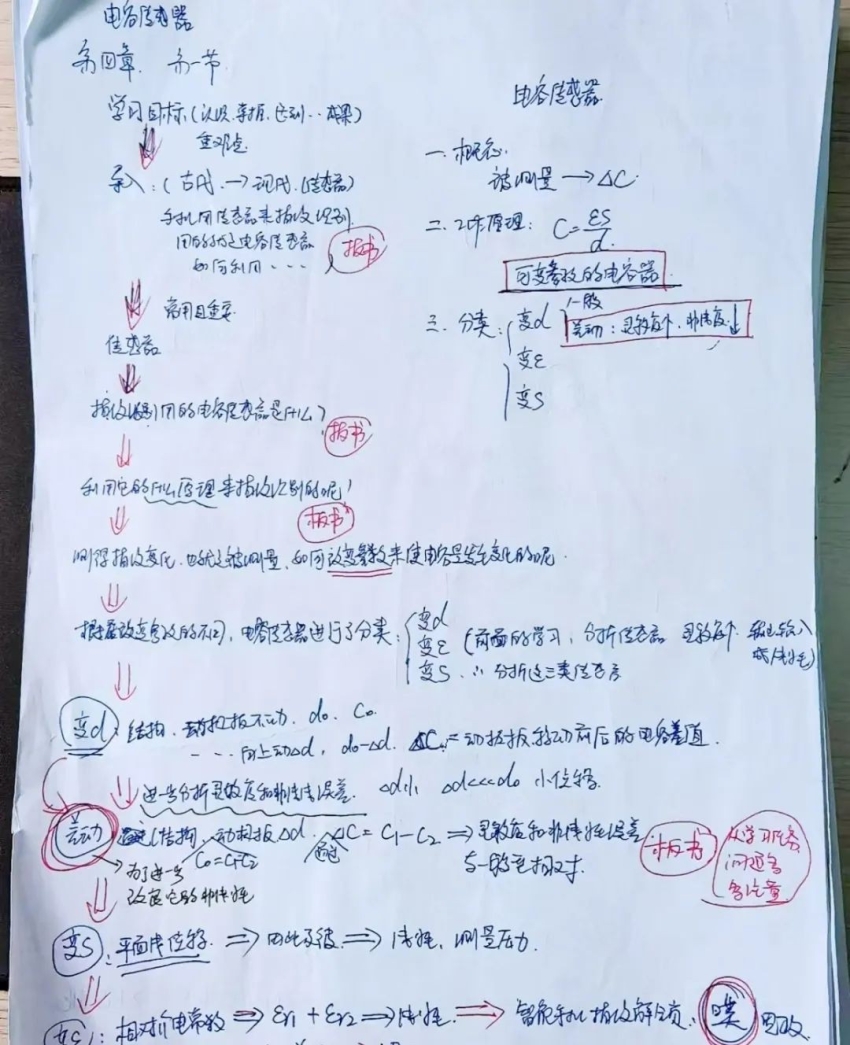 电容传感器
第四章 第一节
学习目标(认识、掌握、达到··成果)
重难点
导入:(古代 → 现代 传感器)
手机用传感器来指纹识别
用的就是电容传感器
如何利用····
板书
常用且重要
传感器
指纹识别用的电容传感器是什么?
板书
利用它的什么原理来指纹识别的呢!
板书
测得指纹变化,也就是被测量,如何改变参数来使电容量发生变化的呢.
根据改变参数的不同,电容传感器进行了分类:
变d
变ε (前面的学习,分析传感器 灵敏度个 输出输入 线性)
变S ∴分析这三类传感器
变d:结构,动极板不动 d₀ C₀
····向上动Δd, d₀-Δd. ΔC = 动极板移动前后的电容差值
进一步分析灵敏度和非线性误差. Δd小 Δd<<<d₀ 小位移
差动 结构 动极板Δd. ΔC = C₁-C₂ ⇒ 灵敏度和非线性误差
C₀=C₁-C₂
与一般型相对
为了进一步
改善它的非线性
板书
变S:平面线位移 ⇒ ⇒ 线性,测量压力.
变ε:相对介电常数 ⇒ εr1 + εr2 ⇒ 线性 ⇒ 智能手机指纹解锁
电容传感器
一.概念
被测量 → ΔC
二.工作原理: C=εS/d
可变参数的电容器
三.分类:变d 一般
差动:灵敏度个、非线度↓
变ε
变S